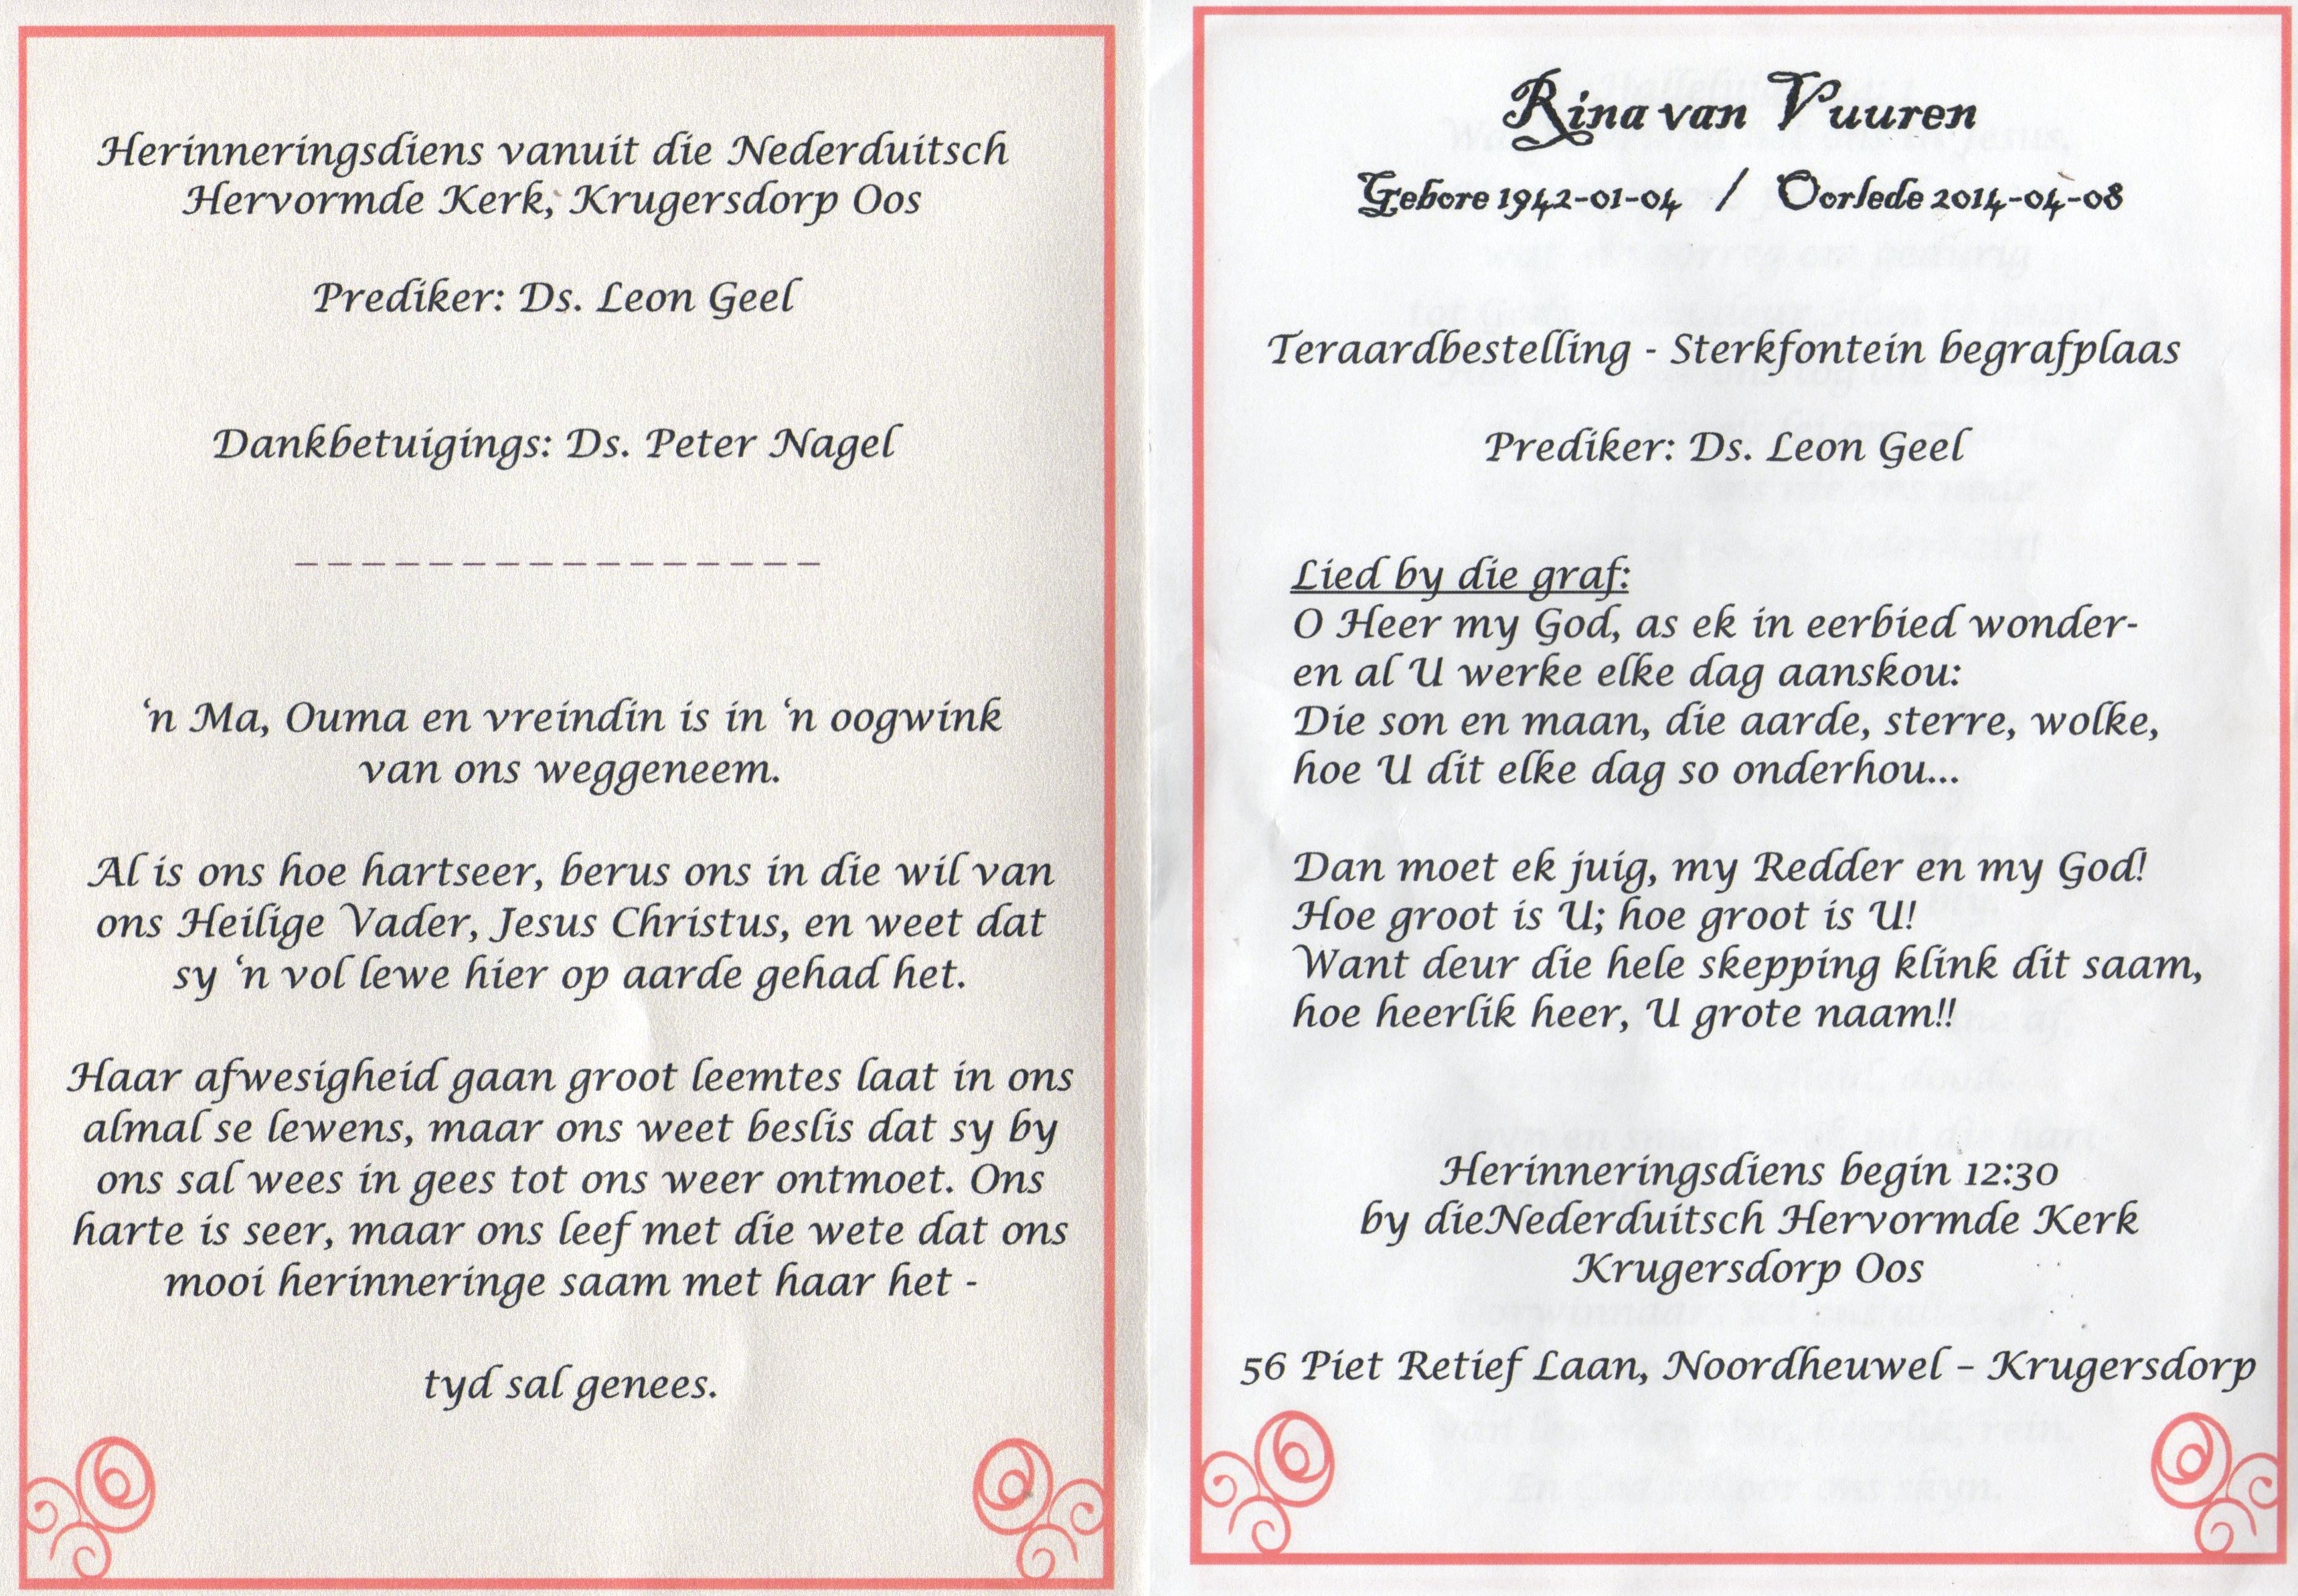 Herinneringsdiens vanuit die Nederduitsch
Hervormde Kerk, Krugersdorp Oos
Prediker: Ds. Leon Geel
Dankbetuigings: Ds. Peter Nagel
_ _ _ _ _ _ _ _ _ _ _ _ _ _ _ _
‘n Ma, Ouma en vreindin is in ‘n oogwink
van ons weggeneem.
Al is ons hoe hartseer, berus ons in die wil van
ons Heilige Vader, Jesus Christus, en weet dat
sy ‘n vol lewe hier op aarde gehad het.
Haar afwesigheid gaan groot leemtes laat in ons
almal se lewens, maar ons weet beslis dat sy by
ons sal wees in gees tot ons weer ontmoet. Ons
harte is seer, maar ons leef met die wete dat ons
mooi herinneringe saam met haar het -
tyd sal genees.
Rina van Vuuren
Gebore 1942-01-04 / Oorlede 2014-04-08
Teraardbestelling - Sterkfontein begrafplaas
Prediker: Ds. Leon Geel
Lied by die graf:
O Heer my God, as ek in eerbied wonder-
en al U werke elke dag aanskou:
Die son en maan, die aarde, sterre, wolke,
hoe U dit elke dag so onderhou...
Dan moet ek juig, my Redder en my God!
Hoe groot is U; hoe groot is U!
Want deur die hele skepping klink dit saam,
hoe heerlik heer, U grote naam!!
Herinneringsdiens begin 12:30
by dieNederduitsch Hervormde Kerk
Krugersdorp Oos
56 Piet Retief Laan, Noordheuwel – Krugersdorp